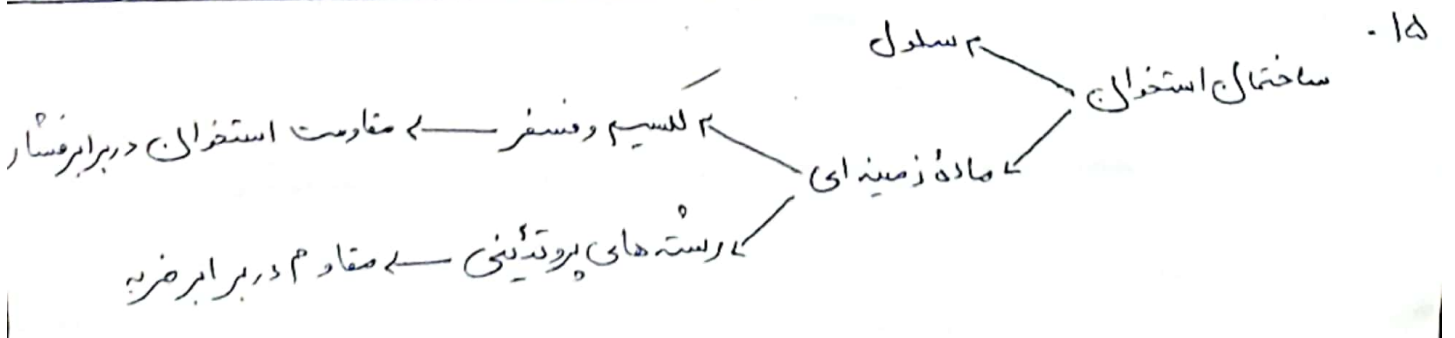 ۱۵.
ساختمان استخوان
سلول
ماده زمینه ای
کلسیم و فسفر ← مقاومت استخوان در برابر فشار
رشته های پروتئینی ← مقاوم در برابر ضربه